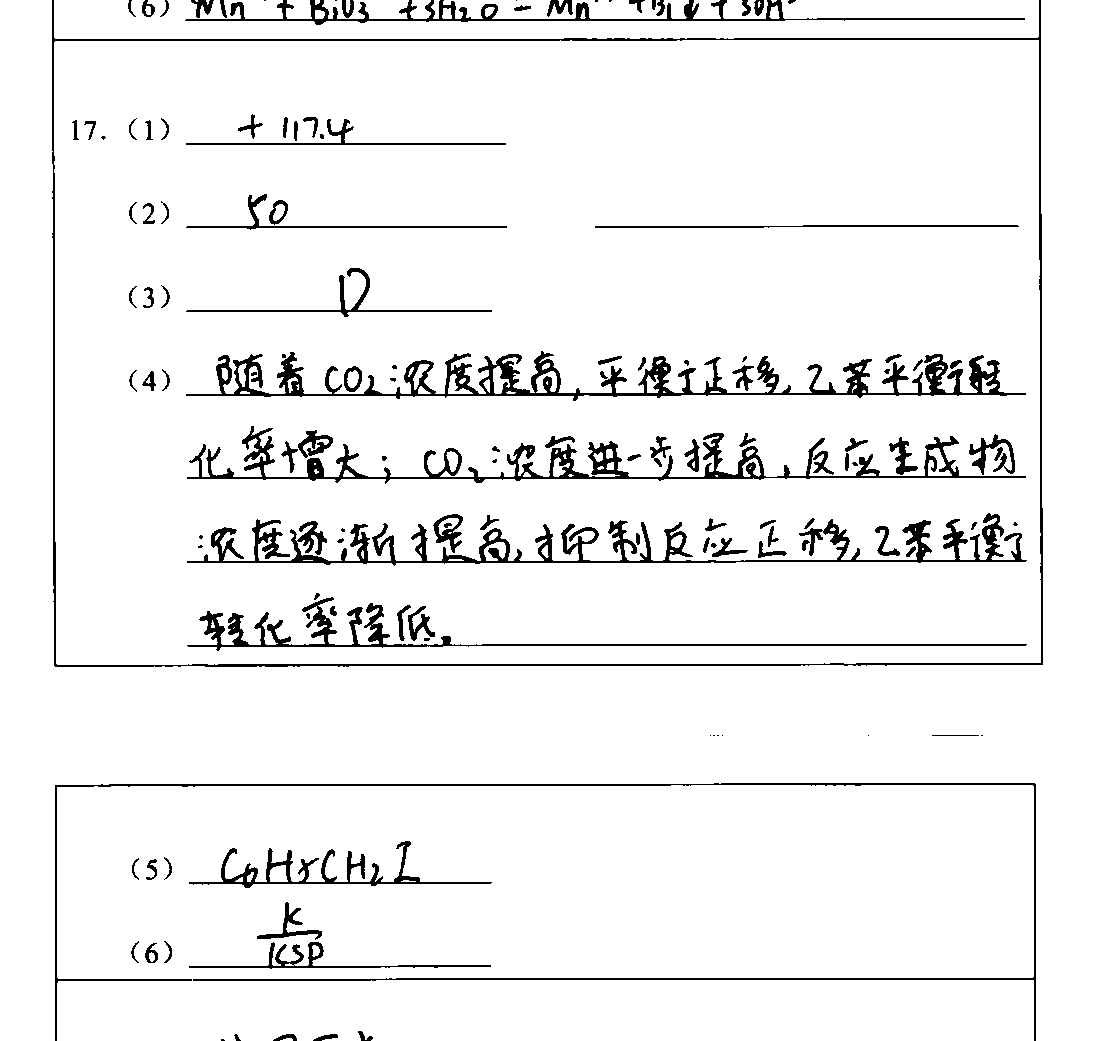 (6) Mn + BiO3 + 3H2O = Mn
17.（1） +117.4
（2） 50
（3） D
（4） 随着CO2浓度提高，平衡正移，乙苯平衡转
化率增大；CO2浓度进一步提高，反应生成物
浓度逐渐提高，抑制反应正移，乙苯平衡
转化率降低。
（5） C6H5CH2I
（6） K/KSP